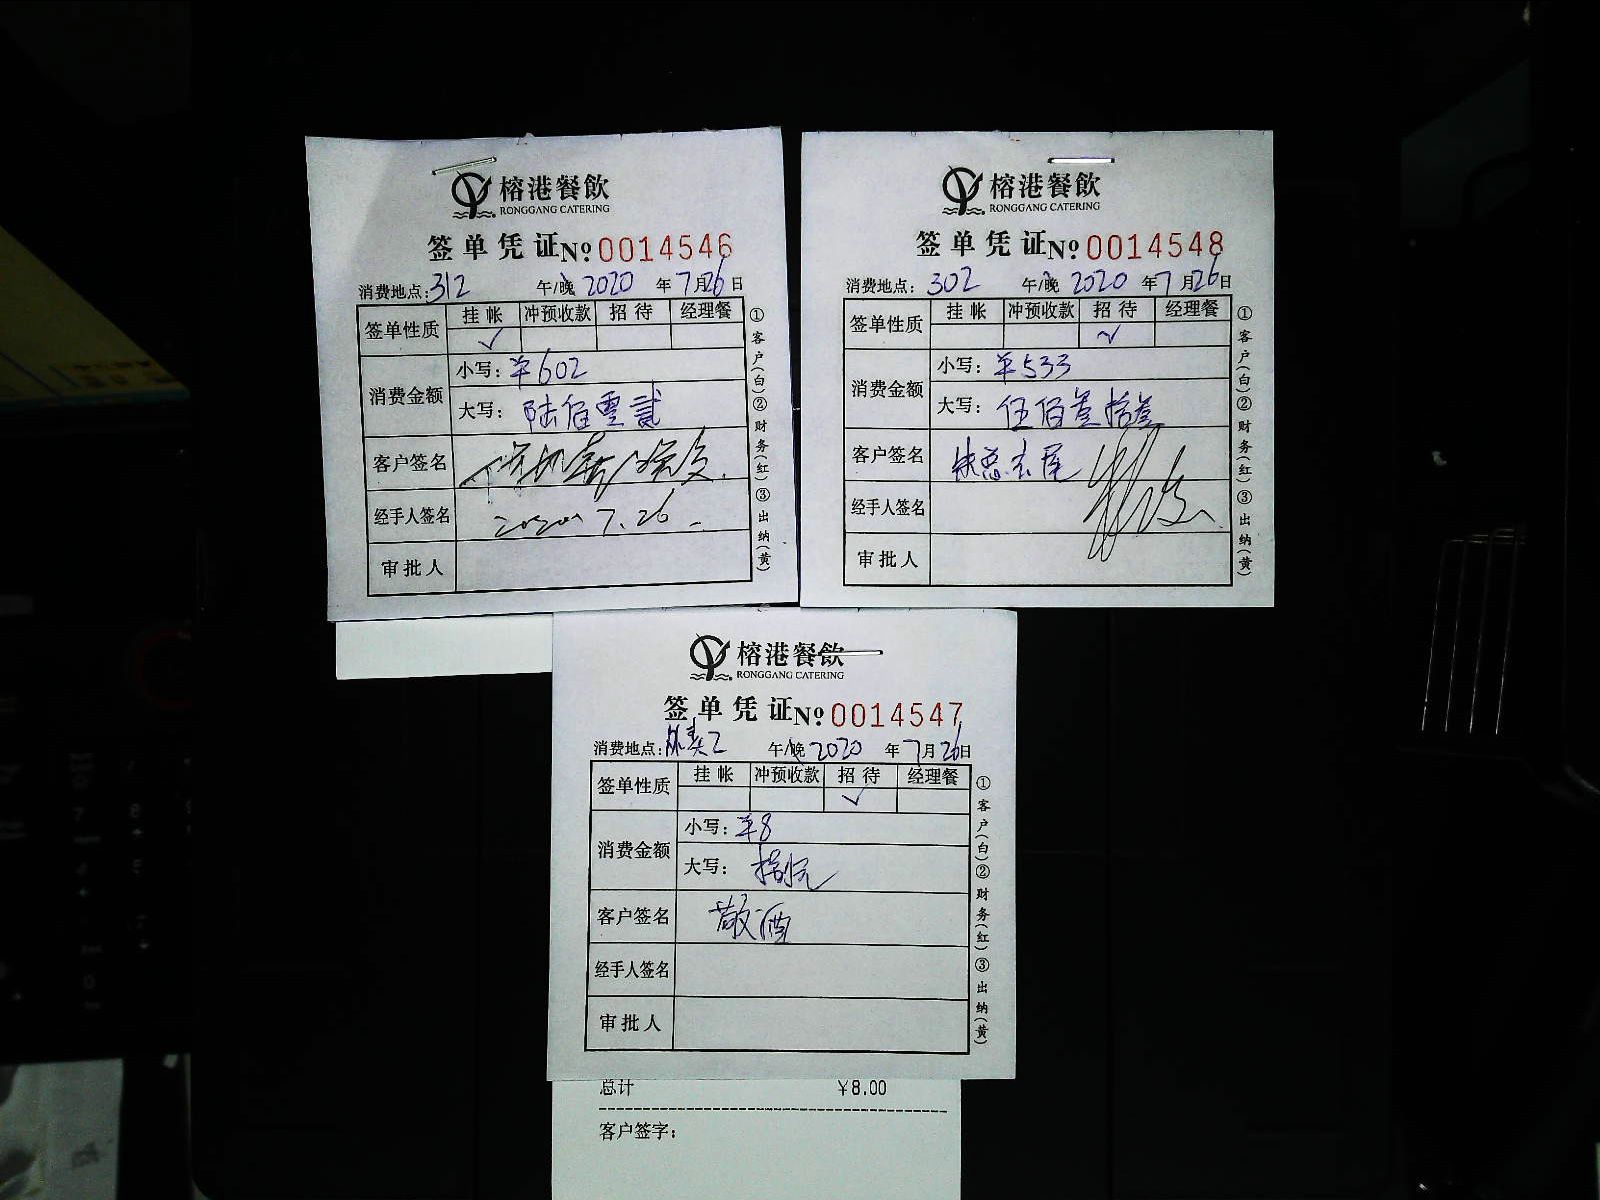 榕港餐飲
RONGGANG CATERING
签单凭证№0014546
消费地点:312 午/晚 2020 年 7月26日
签单性质 挂帐 冲预收款 招待 经理餐
✓
消费金额 小写:¥602
大写: 陆佰零贰
客户签名
经手人签名 2020 7.26
审批人
①客户(白)②财务(红)③出纳(黄)
榕港餐飲
RONGGANG CATERING
签单凭证№0014548
消费地点: 302 午/晚 2020 年7月26日
签单性质 挂帐 冲预收款 招待 经理餐
✓
消费金额 小写:¥533
大写: 伍佰叁拾叁
客户签名
经手人签名
审批人
①客户(白)②财务(红)③出纳(黄)
榕港餐飲
RONGGANG CATERING
签单凭证№0014547
消费地点: 午/晚 2020 年7月26日
签单性质 挂帐 冲预收款 招待 经理餐
✓
消费金额 小写:¥8
大写: 捌元
客户签名 散酒
经手人签名
审批人
①客户(白)②财务(红)③出纳(黄)
总计 ¥8.00
客户签字: